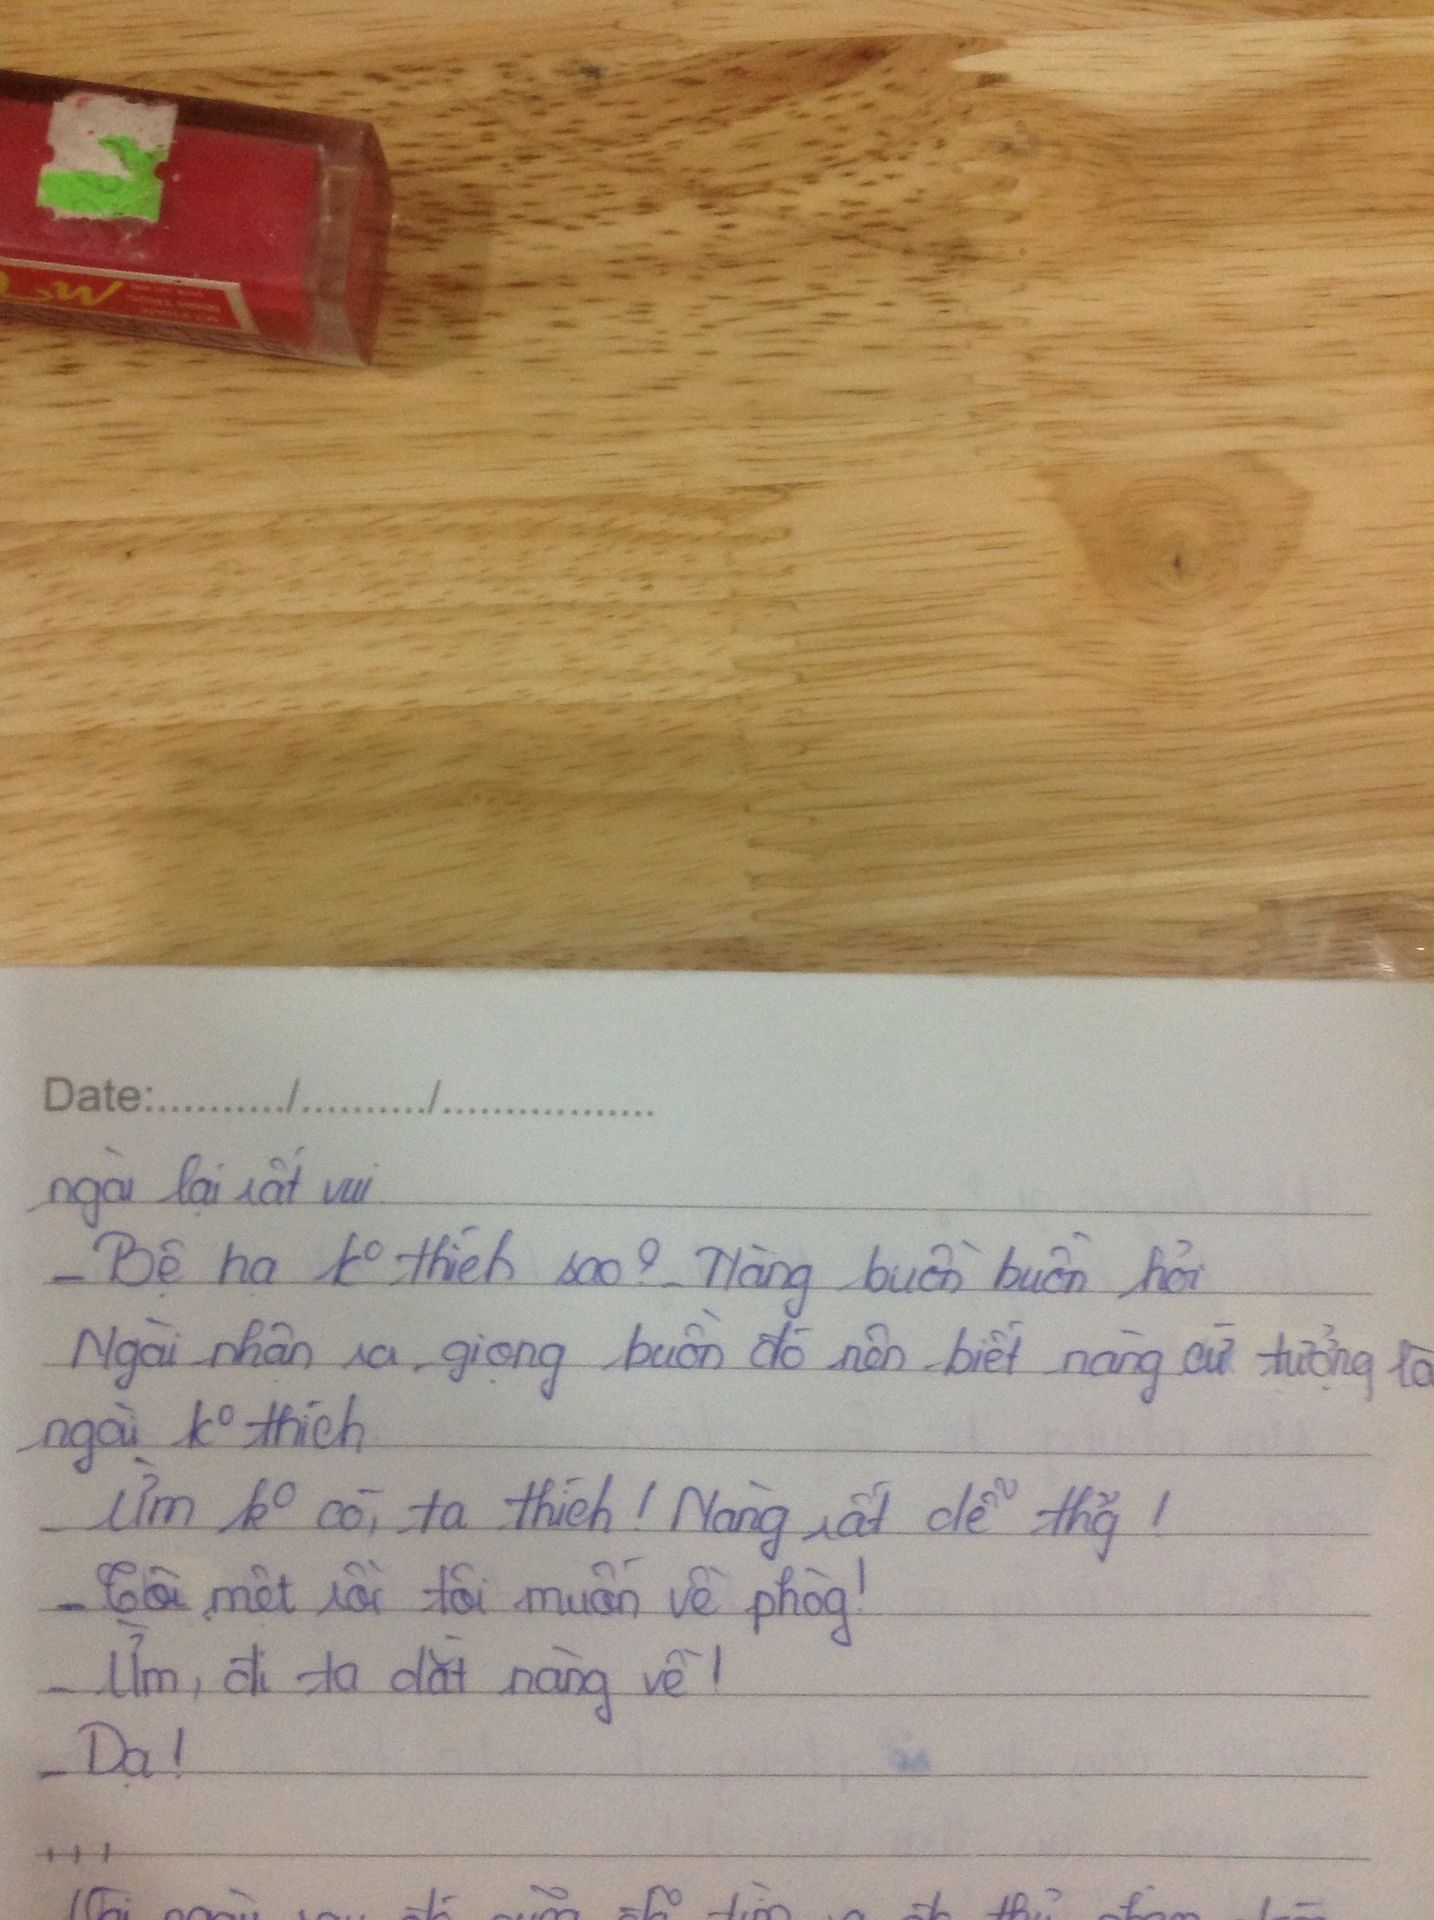 Date:........../........../.................
ngài lại rất vui
- Bệ hạ k° thích sao? - Nàng buồn buồn hỏi
Ngài nhận ra giọng buồn đó nên biết nàng cứ tưởng là
ngài k° thích
- Ừm k° có, ta thích! Nàng rất dễ thg̃!
- Tôi mệt rồi tôi muốn về phòg!
- Ừm, đi ta dắt nàng về!
- Dạ!
+++
ngày sau đó cũng đã tìm ra